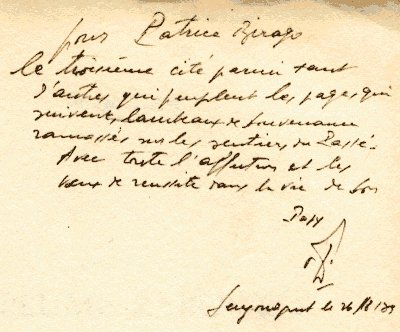 pour Patrice Birago
le troisième cité parmi tant
d'autres qui peuplent les pages qui
suivent, lambeaux de souvenance
ramassés sur les sentiers du Passé.
Avec toute l'affection et les
vœux de réussite dans la vie de son
Papy
le 26